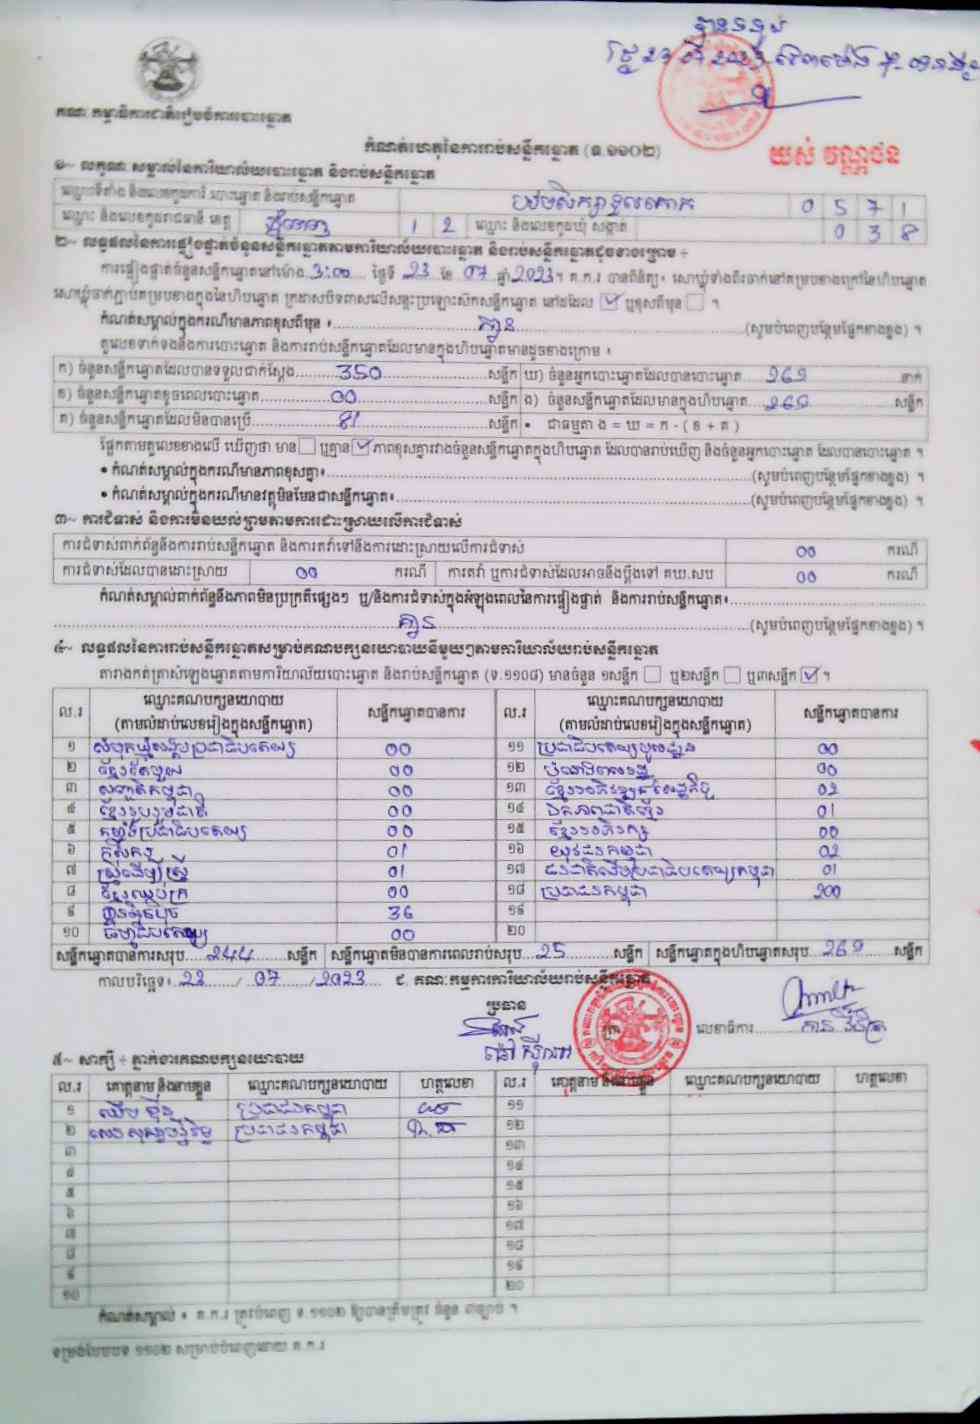 គណៈកម្មាធិការជាតិរៀបចំការបោះឆ្នោត
កំណត់ហេតុនៃការរាប់សន្លឹកឆ្នោត (ទ.១១០២)
យស់ វណ្ណថន
១~ លក្ខណៈសម្គាល់នៃការិយាល័យបោះឆ្នោត និងរាប់សន្លឹកឆ្នោត
ឈ្មោះទីតាំង និងលេខកូដការិ.បោះឆ្នោត និងរាប់សន្លឹកឆ្នោត 0 5 7 1
ឈ្មោះ និងលេខកូដរាជធានី ខេត្ត ភ្នំពេញ 1 2 ឈ្មោះ និងលេខកូដឃុំ សង្កាត់ 0 3 8
២~ លទ្ធផលនៃការផ្ទៀងផ្ទាត់ចំនួនសន្លឹកឆ្នោតតាមការិយាល័យបោះឆ្នោត និងរាប់សន្លឹកឆ្នោតដូចខាងក្រោម ÷
ការផ្ទៀងផ្ទាត់ចំនួនសន្លឹកឆ្នោតនៅម៉ោង 3:00 ថ្ងៃទី 23 ខែ 07 ឆ្នាំ 2023។ គ.ក.រ បានពិនិត្យ៖ សោឃ្លុំទាំងពីរចាក់នៅគម្របខាងក្រៅនៃហិបឆ្នោត
សោឃ្លុំចាក់ភ្ជាប់គម្របខាងក្នុងនៃហិបឆ្នោត ក្រដាសបិទពាសលើសន្ទះប្រឡោះស៊កសន្លឹកឆ្នោត នៅដដែល ☑ ឬខុសពីមុន ☐ ។
កំណត់សម្គាល់ក្នុងករណីមានភាពខុសពីមុន ៖ គ្មាន (សូមបំពេញបន្ថែមផ្នែកខាងខ្នង) ។
តួលេខទាក់ទងនឹងការបោះឆ្នោត និងការរាប់សន្លឹកឆ្នោតដែលមានក្នុងហិបឆ្នោតមានដូចខាងក្រោម ៖
ក) ចំនួនសន្លឹកឆ្នោតដែលបានទទួលជាក់ស្តែង 350 សន្លឹក ឃ) ចំនួនអ្នកបោះឆ្នោតដែលបានបោះឆ្នោត 269 នាក់
ខ) ចំនួនសន្លឹកឆ្នោតខូចពេលបោះឆ្នោត 00 សន្លឹក ង) ចំនួនសន្លឹកឆ្នោតដែលមានក្នុងហិបឆ្នោត 269 សន្លឹក
គ) ចំនួនសន្លឹកឆ្នោតដែលមិនបានប្រើ 81 សន្លឹក • ជាធម្មតា ង = ឃ = ក - ( ខ + គ )
ផ្អែកតាមតួលេខខាងលើ ឃើញថា មាន ☐ ឬគ្មាន ☑ ភាពខុសគ្នារវាងចំនួនសន្លឹកឆ្នោតក្នុងហិបឆ្នោត ដែលបានរាប់ឃើញ និងចំនួនអ្នកបោះឆ្នោត ដែលបានបោះឆ្នោត ។
• កំណត់សម្គាល់ក្នុងករណីមានភាពខុសគ្នា៖ (សូមបំពេញបន្ថែមផ្នែកខាងខ្នង) ។
• កំណត់សម្គាល់ក្នុងករណីមានវត្ថុមិនមែនជាសន្លឹកឆ្នោត៖ (សូមបំពេញបន្ថែមផ្នែកខាងខ្នង) ។
៣~ ការជំទាស់ និងការមិនយល់ព្រមតាមការដោះស្រាយលើការជំទាស់
ការជំទាស់ពាក់ព័ន្ធនឹងការរាប់សន្លឹកឆ្នោត និងការតវ៉ាទៅនឹងការដោះស្រាយលើការជំទាស់ 00 ករណី
ការជំទាស់ដែលបានដោះស្រាយ 00 ករណី ការតវ៉ា ឬការជំទាស់ដែលអាចនឹងប្តឹងទៅ គឃ.សប 00 ករណី
កំណត់សម្គាល់ពាក់ព័ន្ធនឹងភាពមិនប្រក្រតីផ្សេងៗ ឬ/និងការជំទាស់ក្នុងអំឡុងពេលនៃការផ្ទៀងផ្ទាត់ និងការរាប់សន្លឹកឆ្នោត៖
គ្មាន (សូមបំពេញបន្ថែមផ្នែកខាងខ្នង) ។
៤~ លទ្ធផលនៃការរាប់សន្លឹកឆ្នោតសម្រាប់គណបក្សនយោបាយនីមួយៗតាមការិយាល័យរាប់សន្លឹកឆ្នោត
តារាងកត់ត្រាសំឡេងឆ្នោតតាមការិយាល័យបោះឆ្នោត និងរាប់សន្លឹកឆ្នោត (ទ.១១០៨) មានចំនួន ១សន្លឹក ☐ ឬ២សន្លឹក ☐ ឬ៣សន្លឹក ☑ ។
ល.រ ឈ្មោះគណបក្សនយោបាយ (តាមលំដាប់លេខរៀងក្នុងសន្លឹកឆ្នោត) សន្លឹកឆ្នោតបានការ ល.រ ឈ្មោះគណបក្សនយោបាយ (តាមលំដាប់លេខរៀងក្នុងសន្លឹកឆ្នោត) សន្លឹកឆ្នោតបានការ
១ សំបុកឃ្មុំសង្គមប្រជាធិបតេយ្យ 00 ១១ ប្រជាធិបតេយ្យមូលដ្ឋាន 00
២ ខ្មែរតែមួយ 00 ១២ 00
៣ សញ្ជាតិកម្ពុជា 00 ១៣ ខ្មែរអភិវឌ្ឍន៍សេដ្ឋកិច្ច 02
៤ ខ្មែររួបរួមជាតិ 00 ១៤ ឯកភាពជាតិខ្មែរ 01
៥ កម្លាំងប្រជាធិបតេយ្យ 00 ១៥ ខ្មែរអភិរក្ស 00
៦ កសិករ 01 ១៦ យុវជនកម្ពុជា 02
៧ ស្ត្រីដើម្បីស្ត្រី 01 ១៧ ជនជាតិដើមប្រជាធិបតេយ្យកម្ពុជា 01
៨ ខ្មែរឈប់ក្រ 00 ១៨ ប្រជាជនកម្ពុជា 200
៩ ហ៊្វុនស៊ិនប៉ិច 36 ១៩
១០ ធម្មាធិបតេយ្យ 00 ២០
សន្លឹកឆ្នោតបានការសរុប 244 សន្លឹក សន្លឹកឆ្នោតមិនបានការពេលរាប់សរុប 25 សន្លឹក សន្លឹកឆ្នោតក្នុងហិបឆ្នោតសរុប 269 សន្លឹក
កាលបរិច្ឆេទ៖ 23 / 07 / 2023 ៩. គណៈកម្មការការិយាល័យរាប់សន្លឹកឆ្នោត
ប្រធាន
លេខាធិការ
៥~ សាក្សី ÷ ភ្នាក់ងារគណបក្សនយោបាយ
ល.រ គោត្តនាម និងនាមខ្លួន ឈ្មោះគណបក្សនយោបាយ ហត្ថលេខា ល.រ គោត្តនាម និងនាមខ្លួន ឈ្មោះគណបក្សនយោបាយ ហត្ថលេខា
១ ប្រជាជនកម្ពុជា ១១
២ ប្រជាជនកម្ពុជា ១២
៣ ១៣
៤ ១៤
៥ ១៥
៦ ១៦
៧ ១៧
៨ ១៨
៩ ១៩
១០ ២០
កំណត់សម្គាល់ ៖ គ.ក.រ ត្រូវបំពេញ ទ.១១០២ ឱ្យបានត្រឹមត្រូវ ចំនួន ៣ច្បាប់ ។
ទម្រង់បែបបទ ១១០២ សម្រាប់បំពេញដោយ គ.ក.រ